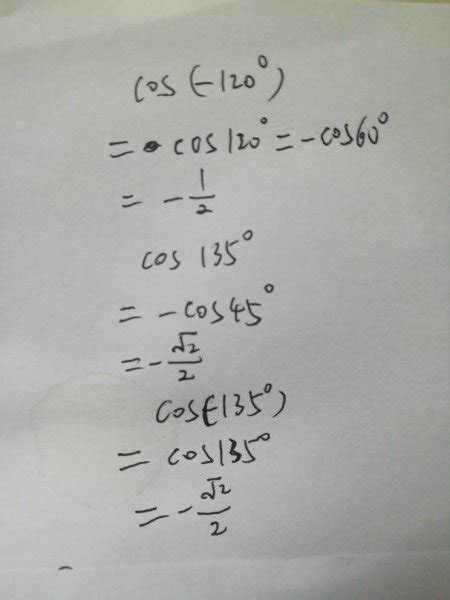 cos(-120°)
= cos120° = -cos60°
= -1/2
cos 135°
= -cos45°
= -√2/2
cos(-135°)
= cos135°
= -√2/2